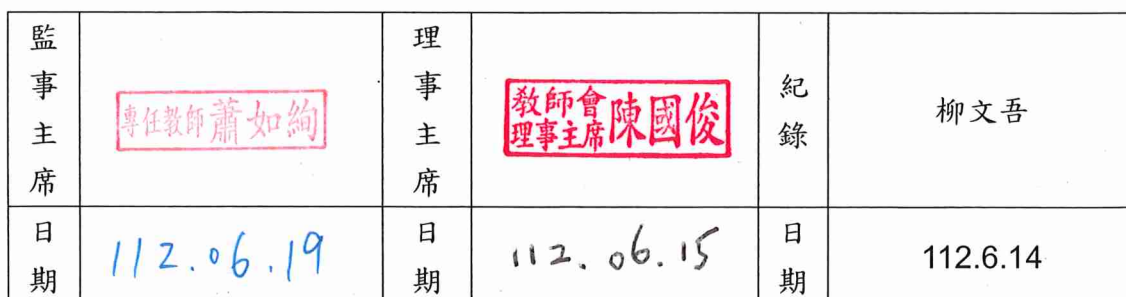 監事主席
專任教師蕭如絢
理事主席
教師會
理事主席
陳國俊
紀錄
柳文吾
日期
112.06.19
日期
112.06.15
日期
112.6.14